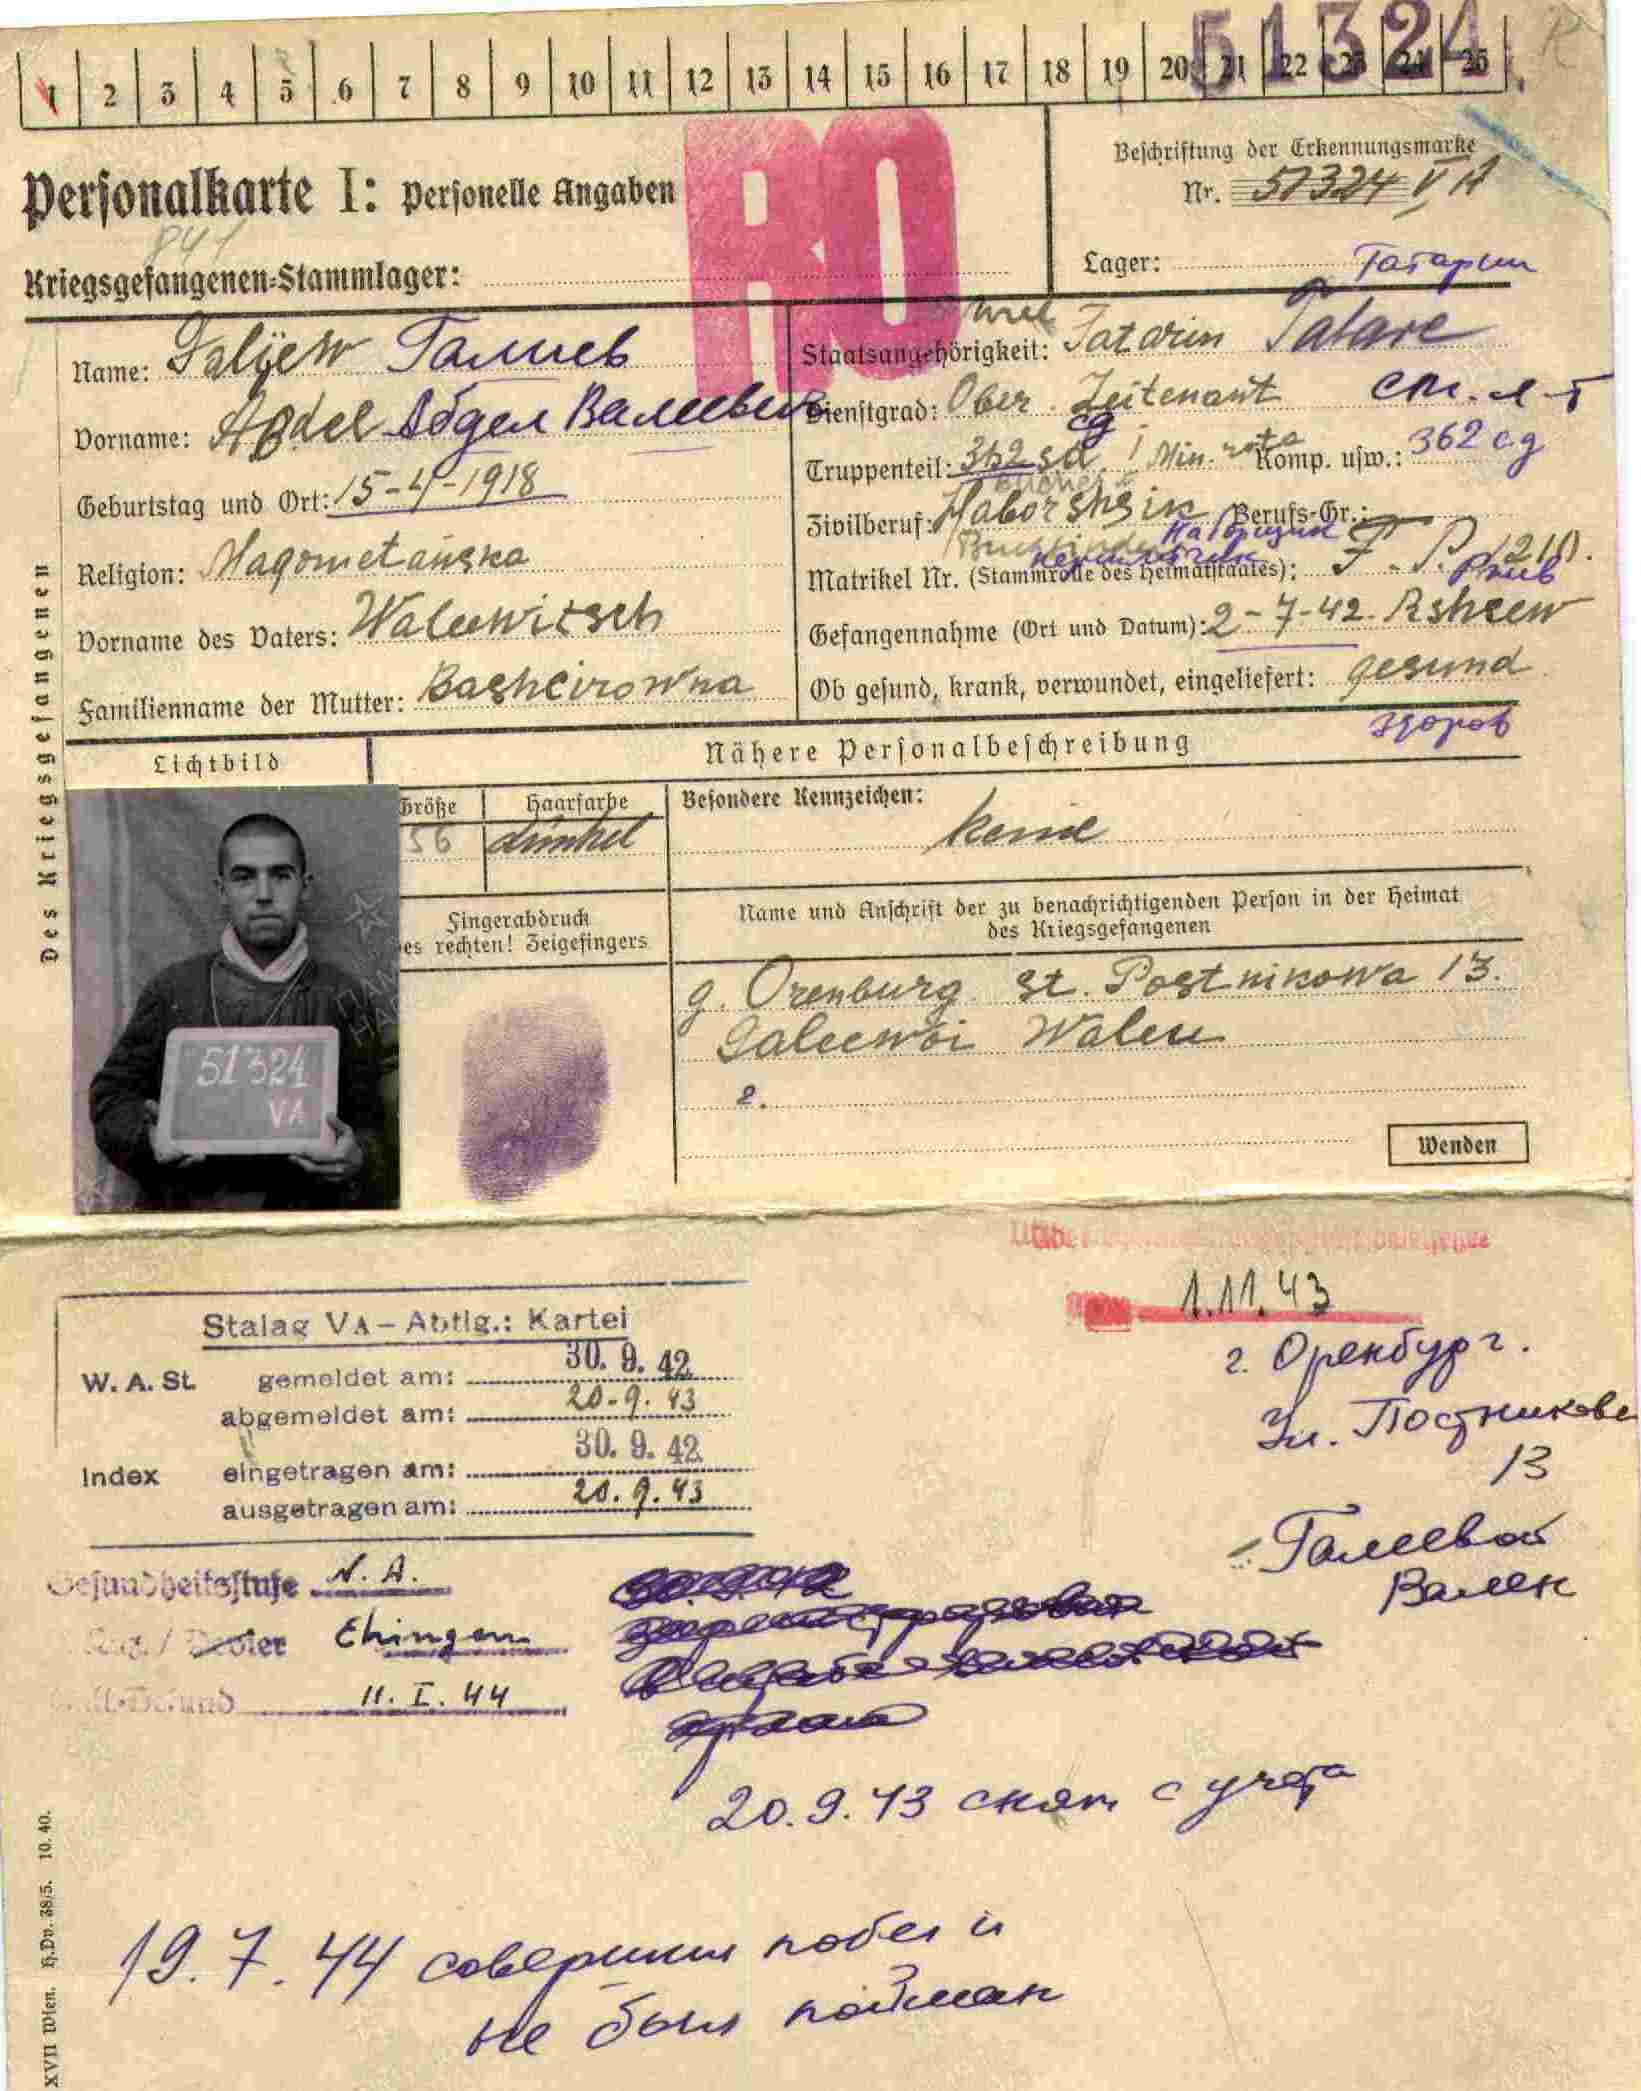 51324
1 2 3 4 5 6 7 8 9 10 11 12 13 14 15 16 17 18 19 20 21 22 23 24 25
Personalkarte I: Personelle Angaben
RO
Beschriftung der Erkennungsmarke
Nr. 51324 V A
Kriegsgefangenen-Stammlager:
Lager: Татарин
Des Kriegsgefangenen
Name: Galijew Галиев
Vorname: Abdel Абдел Валиевич
Geburtstag und Ort: 15-4-1918
Religion: Magometanska
Vorname des Vaters: Waleewitsch
Familienname der Mutter: Basheirowna
Staatsangehörigkeit: Tatarin Tatare
Dienstgrad: Ober Leitenant ст. л-т
Truppenteil: 362 sd сд Min. rota Komp. usw.: 362 сд
Zivilberuf: Naborshzik Berufs-Gr.:
Наборщик
Matrikel Nr. (Stammrolle des Heimatstaates):
Gefangennahme (Ort und Datum): 2-7-42. Rsheew
Ржев
Ob gesund, krank, verwundet, eingeliefert: gesund
здоров
Lichtbild
Nähere Personalbeschreibung
Größe
56
Haarfarbe
dunkel
Besondere Kennzeichen:
keine
51324
VA
Fingerabdruck
des rechten! Zeigefingers
Name und Anschrift der zu benachrichtigenden Person in der Heimat
des Kriegsgefangenen
g. Orenburg st. Postnikowa 13.
Galeewoi Waleu
2.
Wenden
1.11.43
Stalag VA – Abtlg.: Kartei
W. A. St. gemeldet am: 30. 9. 42
abgemeldet am: 20-9. 43
Index eingetragen am: 30. 9. 42
ausgetragen am: 20. 9. 43
г. Оренбург.
Ул. Постникова
13
Галеевой
Валеи
Gesundheitsstufe N. A.
Ehingen
11. I. 44
20.9.43 снят с учета
19.7.44 совершил побег и
не был пойман
XVII Wien. H.Dv. 38/5. 10. 40.